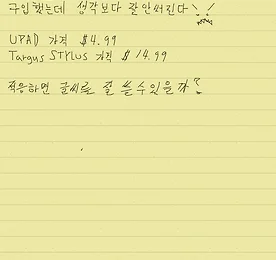 구입했는데 생각보다 잘 안써진다 ㅠㅠ
UPAD 가격 $4.99
Targus STYLUS 가격 $14.99
적응하면 글씨를 잘 쓸수있을까?